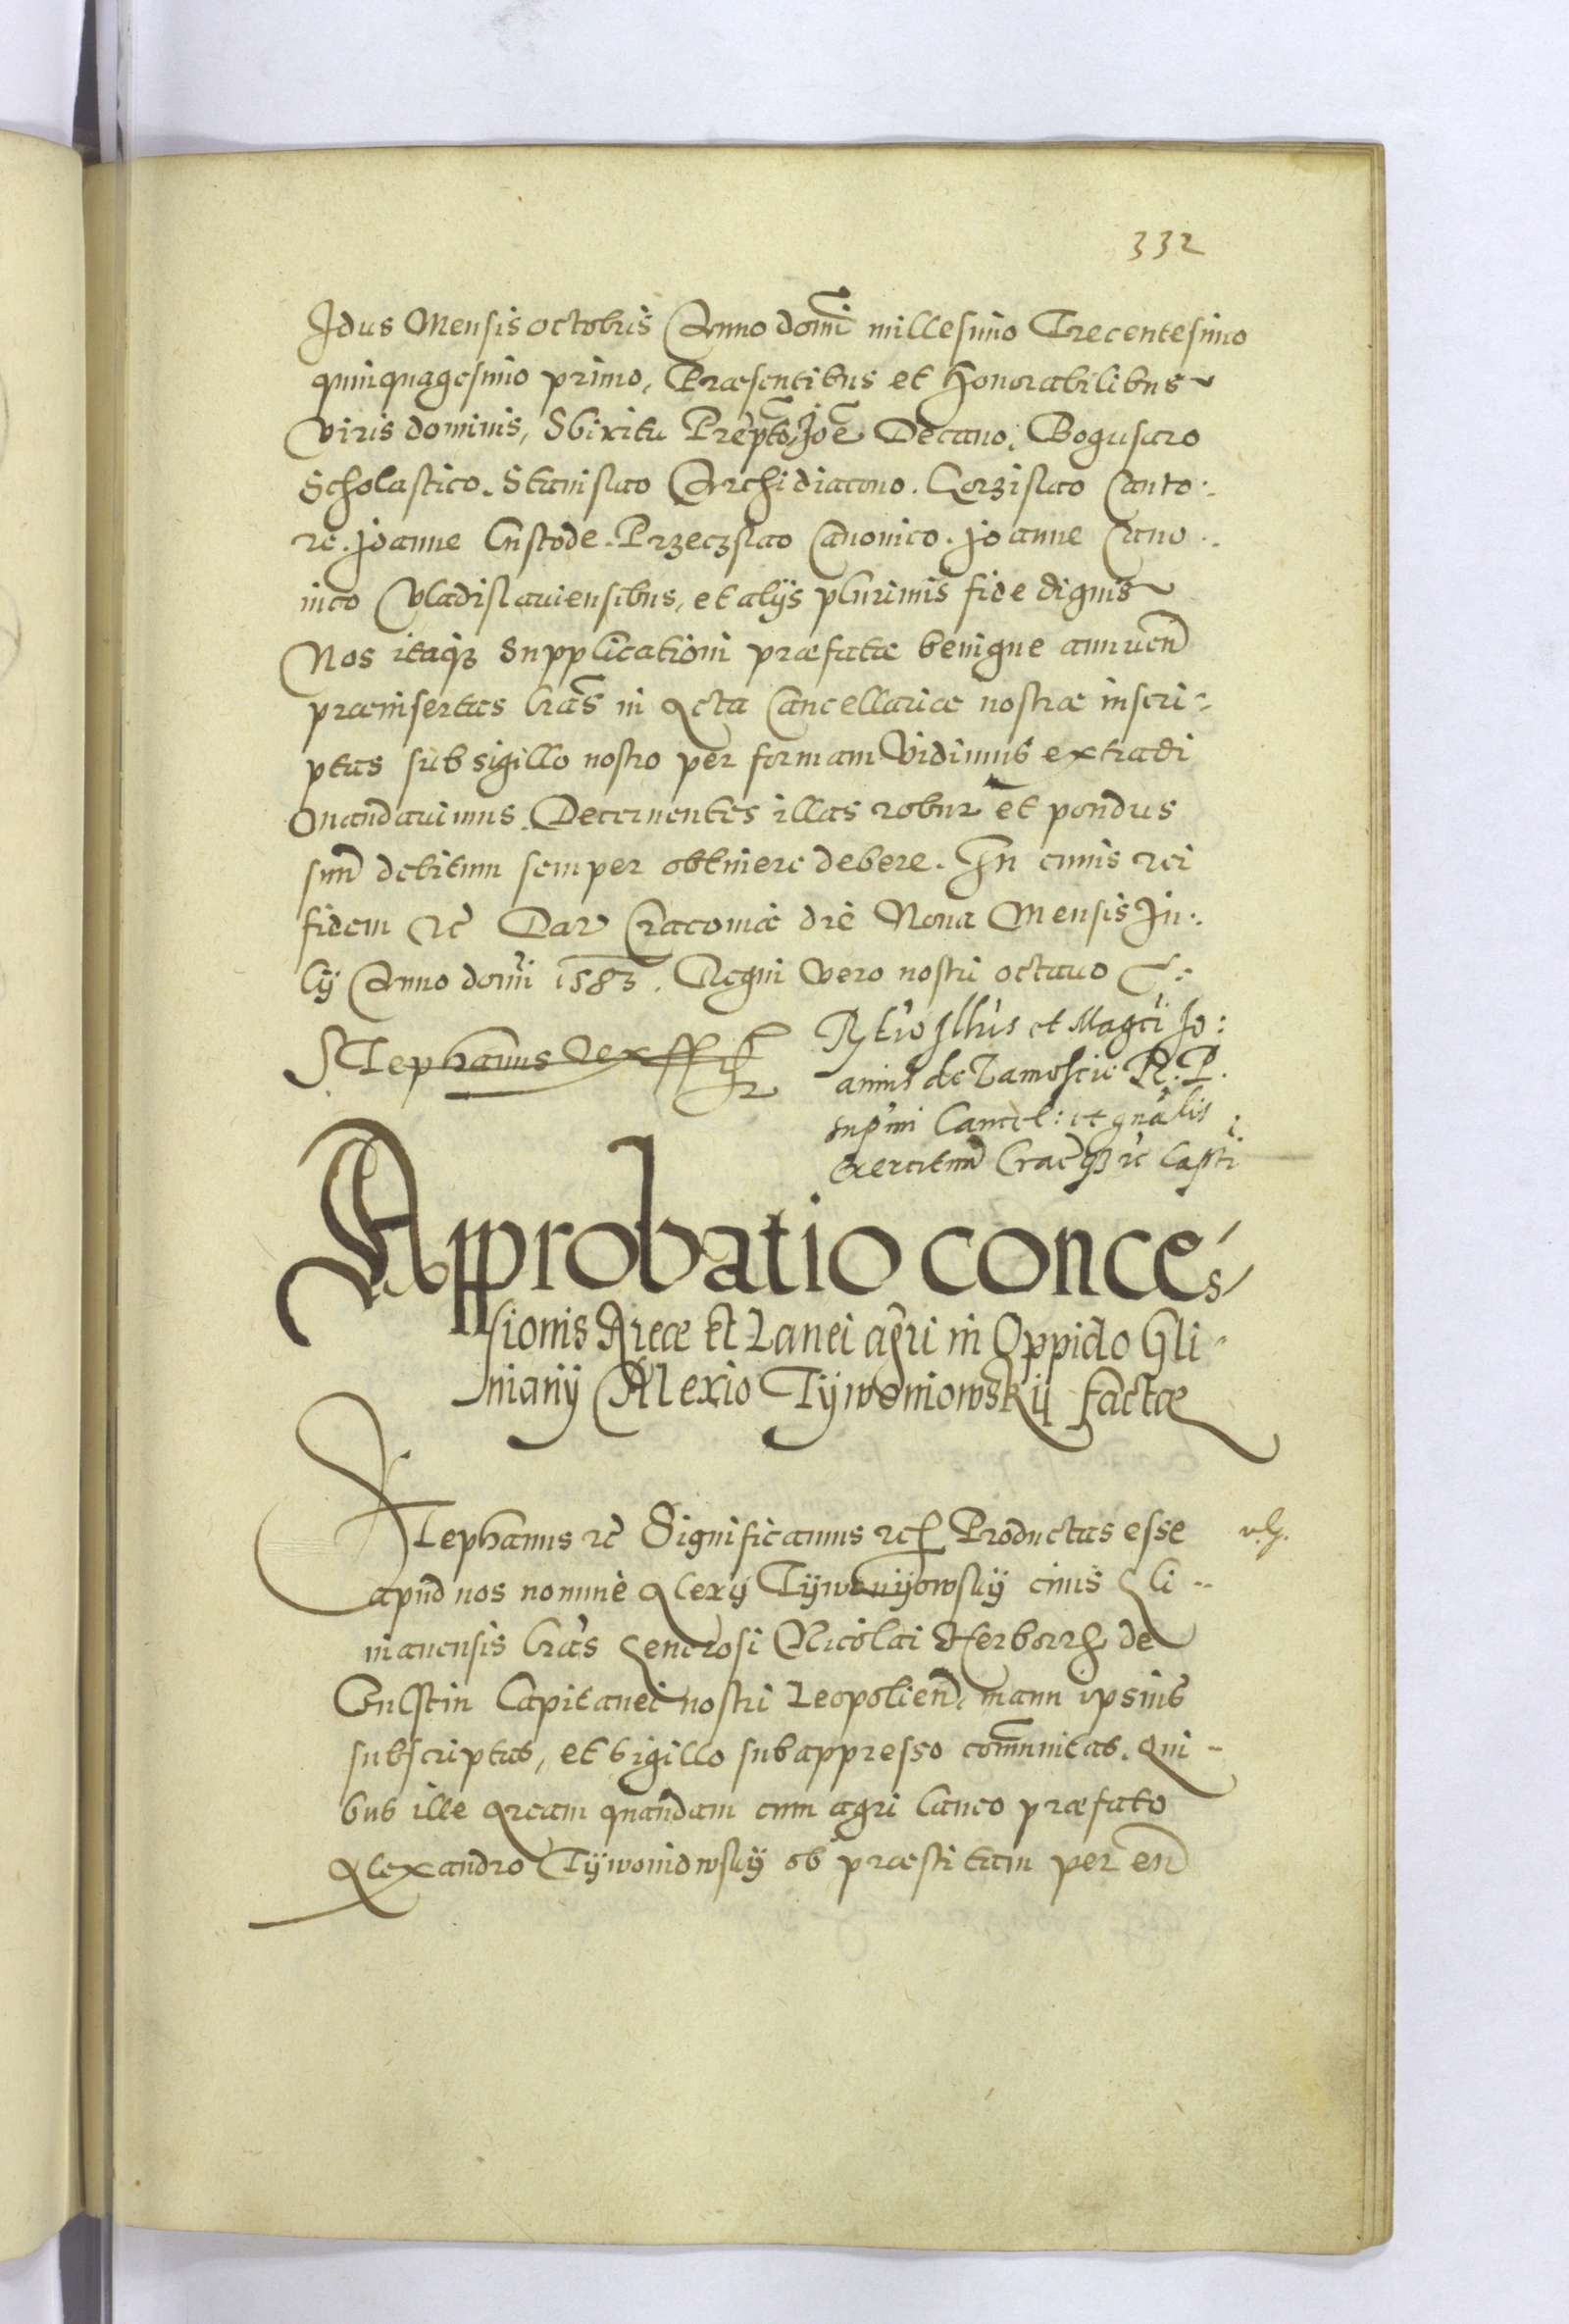 332
Idus Mensis octobris Anno domī millesimo Trecentesimo
quinquagesimo primo, Præsentibus et Honorabilibus
Viris dominis, Sbixitu Prēpto, Joē Decano, Boguslao
Scholastico. Stanislao Archidiacono. Gorzislao Canto:
re. Joanne Custode. Przeczslao Canonico. Joanne Cano:
nico Vladislaviensibus, et alijs plurimis fide dignis
Nos itaqȝ Supplicationi præfatæ benigne annuen̄
præinsertas lr̄as in Acta Cancellariæ nostræ inscri-
ptas sub sigillo nostro per formam Vidimus extradi
Mandavimus. Decernentes illas robur et pondus
suū debitum semper obtinere debere. In cuius rei
fidem ꝛc̄ Dat̄ Cracoviæ die Nona Mensis Ju:
lij Anno domī 1583. Regni vero nostri octavo
Stephanus Rex sst
Rltio Illris et Magci Jo:
annis de Zamoscie R. P.
supmi Cancel: et gnālis
Exercituū Crac qȝ ꝛc Capti
Approbatio conces-
sionis Areæ et Lanei agri in Oppido Gli-
nianij Alexio Tijwoniowskij factæ
Stephanus ꝛc̄ Significamus ꝛc Productas esse
apud nos nomine Alexij Tijwonijowskij civis Gli-
nianensis lr̄as Generosi Nicolai Herborth de
Fulstin Capitanei nostri Leopolien̄, manu ipsius
subscriptas, et sigillo subappresso com̄unitas. Qui-
bus ille Aream quandam cum agri laneo præfato
Alexandro Tijwoniowskij ob præstitam per eū